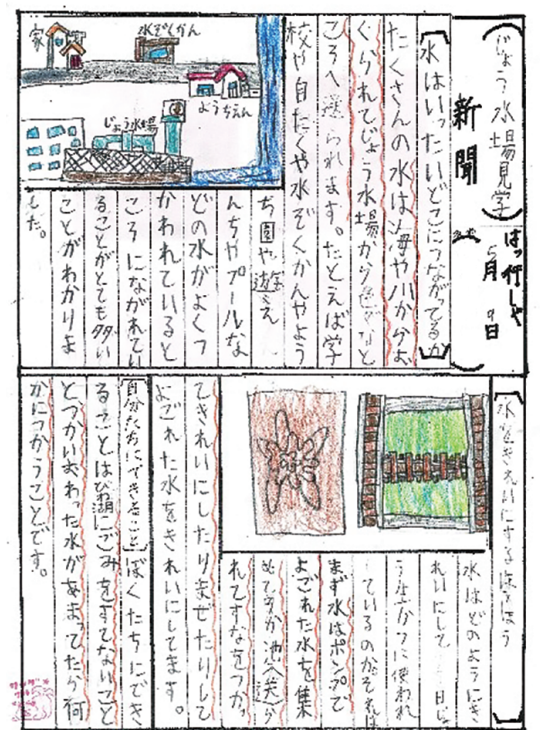 (じょう水場見学)
新聞
はっ行しゃ
5月9日
[水はいったいどこにつながってるか]
たくさんの水は海や川からよ
くられてじょう水場から色々なと
ころへ送られます。たとえば学
校や自たくや水ぞくかんやよう
ち園や遊え
んちやプールな
どの水がよくつ
かわれていると
ころにながれてい
ることがとても多い
ことがわかりま
した。
家
水ぞくかん
ようちえん
じょう水場
[水をきれいにするほうほう]
水はどのようにき
れいにして
う生かつに使われ
ているのかそれは
まず水はポンプで
よごれた水を集
めて
れてすなをつかっ
てきれいにしたりまぜたりして
よごれた水をきれいにしてます。
[自分たちにできること]ぼくたちにでき
ることはびわ湖にごみをすてないこと
とつかいおわった水があまってたら何
かにつかうことです。